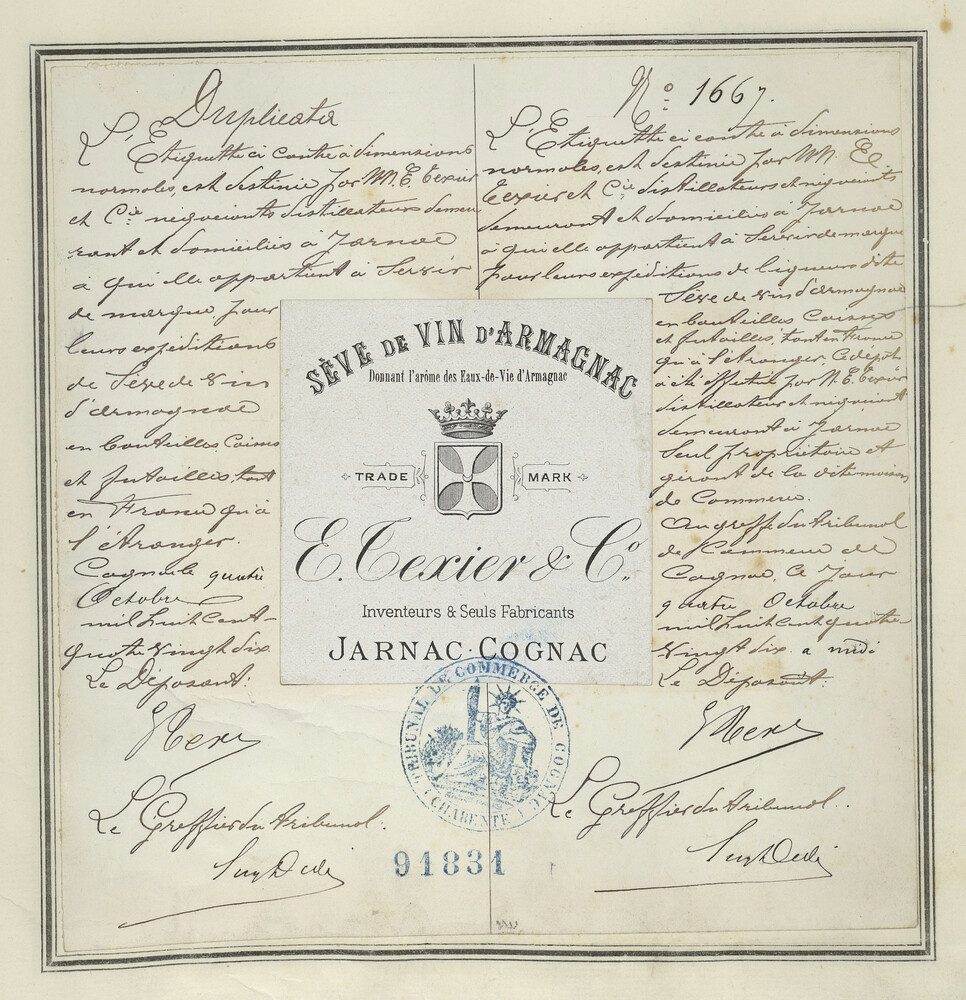 Duplicata
L'Etiquette ci contre à dimensions
normales, est destinée par MM. E. Texier
et Cie négociants distillateurs demeu
rant et domiciliés à Jarnac
à qui elle appartient à Servir
de marque, pour
leurs expéditions
de Sève de vin
d'armagnac
en bouteilles, Caisses
et futailles, tant
en France qu'à
l'étranger.
Cognac le quatre
Octobre
mil huit cent
quatre vingt dix.
Le Déposant:
Le Greffier du tribunal.
No 1667.
L'Etiquette ci contre à dimensions
normales, est destinée par MM. E.
Texier et Cie distillateurs et négociants
demeurant et domiciliés à Jarnac
à qui elle appartient à Servir de marque
pour leurs expéditions de liqueurs dite
Sève de vin d'armagnac
en bouteilles Caisses
et futailles, tant en France
qu'à l'étranger. Ce dépôt
a été effectué par M. E. Texier
distillateur et négociant
demeurant à Jarnac
Seul propriétaire et
gérant de la dite maison
de Commerce.
Au greffe du tribunal
de Commerce de
Cognac, ce jour
quatre Octobre
mil huit cent quatre
vingt dix. a midi
Le Déposant:
Le Greffier du tribunal.
SÈVE DE VIN D'ARMAGNAC
Donnant l'arôme des Eaux-de-Vie d'Armagnac
TRADE MARK
E. Texier & Co.
Inventeurs & Seuls Fabricants
JARNAC-COGNAC
TRIBUNAL DE COMMERCE DE COGNAC
(CHARENTE)
91831